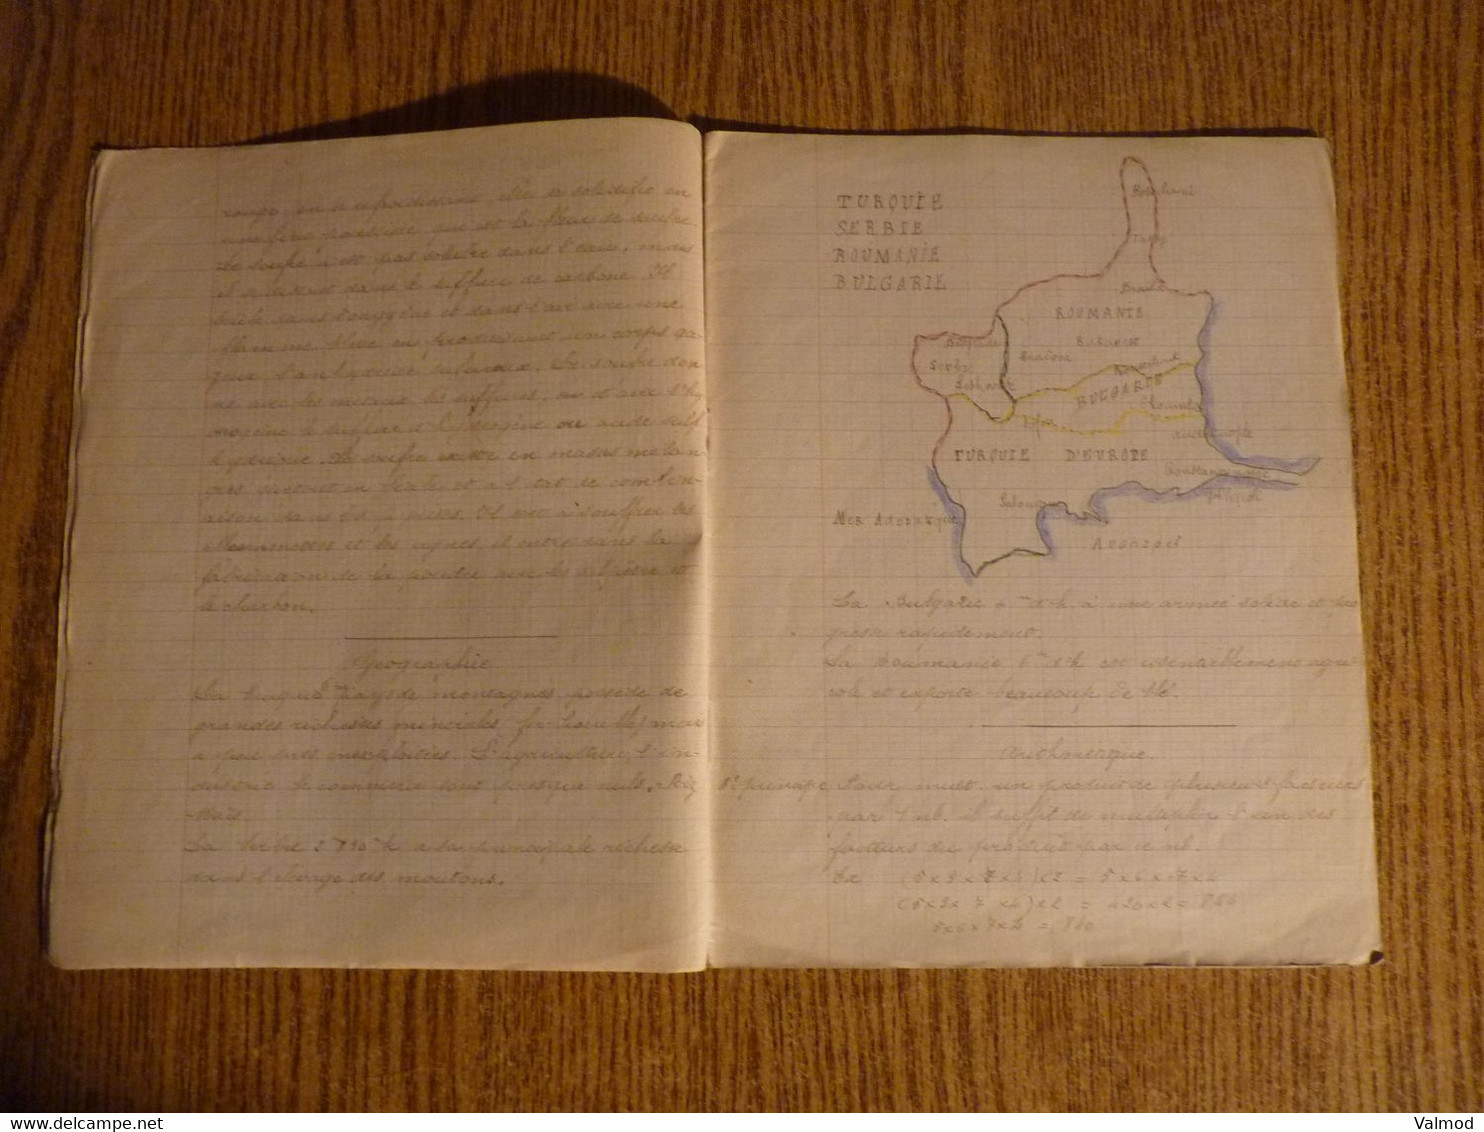 rouge, en se refroidissant elle se solidifie en
une fine poussière qui est la fleur de soufre.
Le soufre n'est pas soluble dans l'eau, mais
il se dissout dans le sulfure de carbone. Il
brûle dans l'oxygène et dans l'air avec une
flamme bleue en produisant un corps ga-
zeux, l'anhydride sulfureux. Le soufre don-
ne avec les métaux les sulfures, on et avec l'hy
drogène le sulfure d'hydrogène ou acide sulf
hydrique. Le soufre existe en masses
surtout en Sicile et à l'état de combin-
aison dans les Il sert à soufrer les
et les vignes, il entre dans la
fabrication de la poudre avec le salpêtre et
le charbon.
Géographie
La Turquie pays de montagnes, possède de
grandes richesses minérales (fer houille) mais
à peu près inexploitées. L'agriculture, l'in-
dustrie le commerce sont presque nuls. Riz
Maïs.
La Serbie a sa principale richesse
dans l'élevage des moutons.
TURQUIE
SERBIE
ROUMANIE
BULGARIE
Botchani
Braila
ROUMANIE
Belgrade
Bukarest
Craiova
Serbie
BULGARIE
Choumla
Sofia
Andrinople
TURQUIE D'EUROPE
Gallipoli
MER ADRIATIQUE
La Bulgarie à une armée solide et pro
gresse rapidement.
La Roumanie est essentiellement agri-
cole et exporte beaucoup de blé.
Arithmétique.
1er principe Pour mult. un produit de plusieurs facteurs
par 1 nb. il suffit de multiplier l'un des
facteurs du produit par ce nb.
Ex (5 x 3 x 7 x 4) x 2 = 5 x 6 x 7 x 4
(5 x 3 x 7 x 4) x 2 = 420 x 2 = 840
5 x 6 x 7 x 4 = 840
www.delcampe.net
Valmod